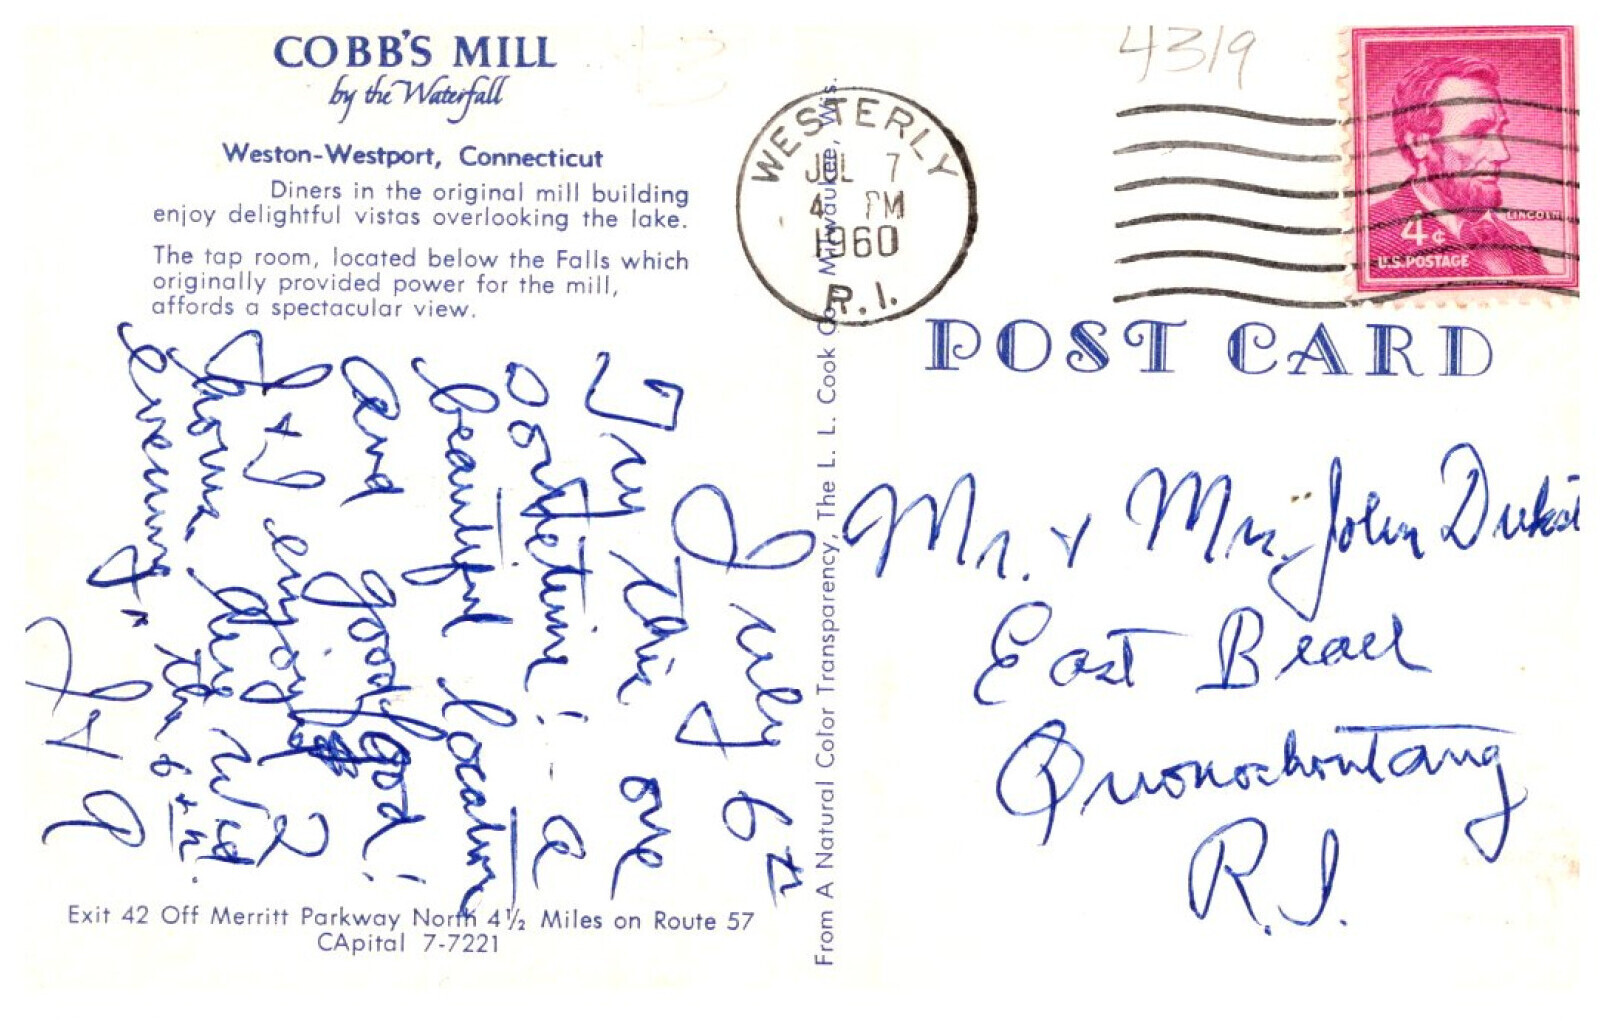 COBB'S MILL
by the Waterfall
Weston-Westport, Connecticut
Diners in the original mill building
enjoy delightful vistas overlooking the lake.
The tap room, located below the Falls which
originally provided power for the mill,
affords a spectacular view.
July 6th
Try this one
sometime! a
beautiful location
and good food!
enjoy
home Aug
evening the 6th.
Exit 42 Off Merritt Parkway North 4½ Miles on Route 57
CApital 7-7221
From A Natural Color Transparency, The L. L. Cook Co., Milwaukee, Wis.
WESTERLY
JUL 7
4 PM
1960
R.I.
4319
LINCOLN
4¢
U.S. POSTAGE
POST CARD
Mr. & Mrs. John
East Beach
Quonochontaug
R.I.